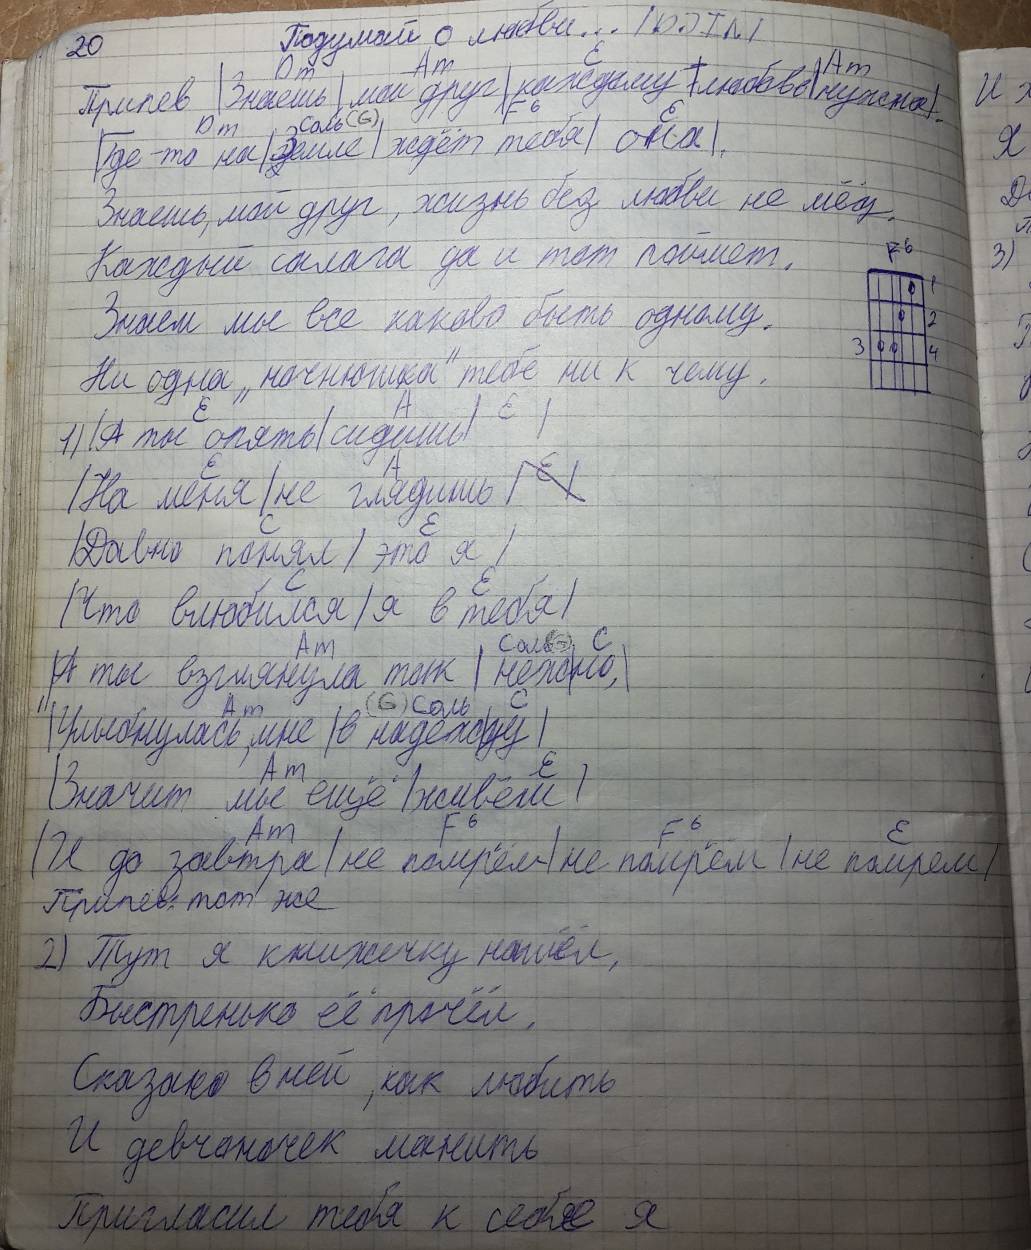 20 Подумай о любви... /DJIN/
Dm Am E Am
Припев |Знаешь|мой друг|каждому|любовь|нужна|.
Dm Соль(G) F6 E
|Где-то на|Земле|ждёт тебя|она|.
Знаешь, мой друг, жизнь без любви не мёд.
Каждый салага да и тот поймет.
F6
1
Знаем мы все каково быть одному.
2
3 4
Ни одна „ночнюшка" тебе ни к чему.
E A E
1)|А ты опять|сидишь| |
E A E
|На меня|не глядишь| |
C E
|Давно понял|это я|
C E
|Что влюбился|я в тебя|
Am Соль(G) C
|А ты взглянула так|нежно,|
Am (G)Соль C
"|Улыбнулась, мне|в надежду|
Am E
|Значит мы ещё|живём|
Am F6 F6 E
|И до завтра|не помрём|не помрём|не помрем|
Припев: тот же
2) Тут я книжечку нашёл,
Быстренько её прочёл,
Сказано в ней, как любить
И девчоночек манить
Пригласил тебя к себе я
И
Я
3)